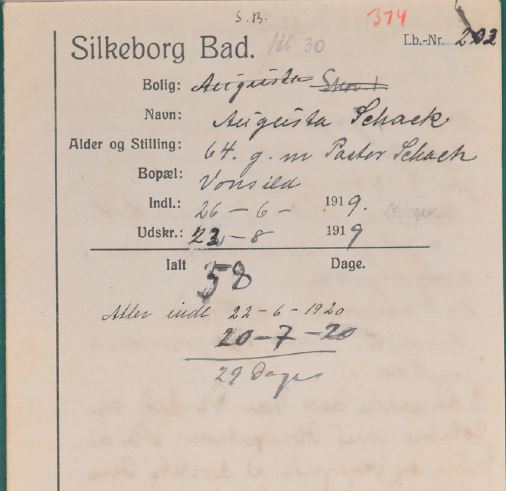 S.B.
374
Silkeborg Bad. 30
Lb.-Nr. 202
Bolig: Augusta
Navn: Augusta Schack
Alder og Stilling: 64. g. m Pastor Schack
Bopæl: Vonsild
Indl.: 26 – 6 – 1919.
Udskr.: 23 – 8 1919
Ialt 58 Dage.
Atter indl 22 – 6 – 1920
20 – 7 – 20
29 Dage